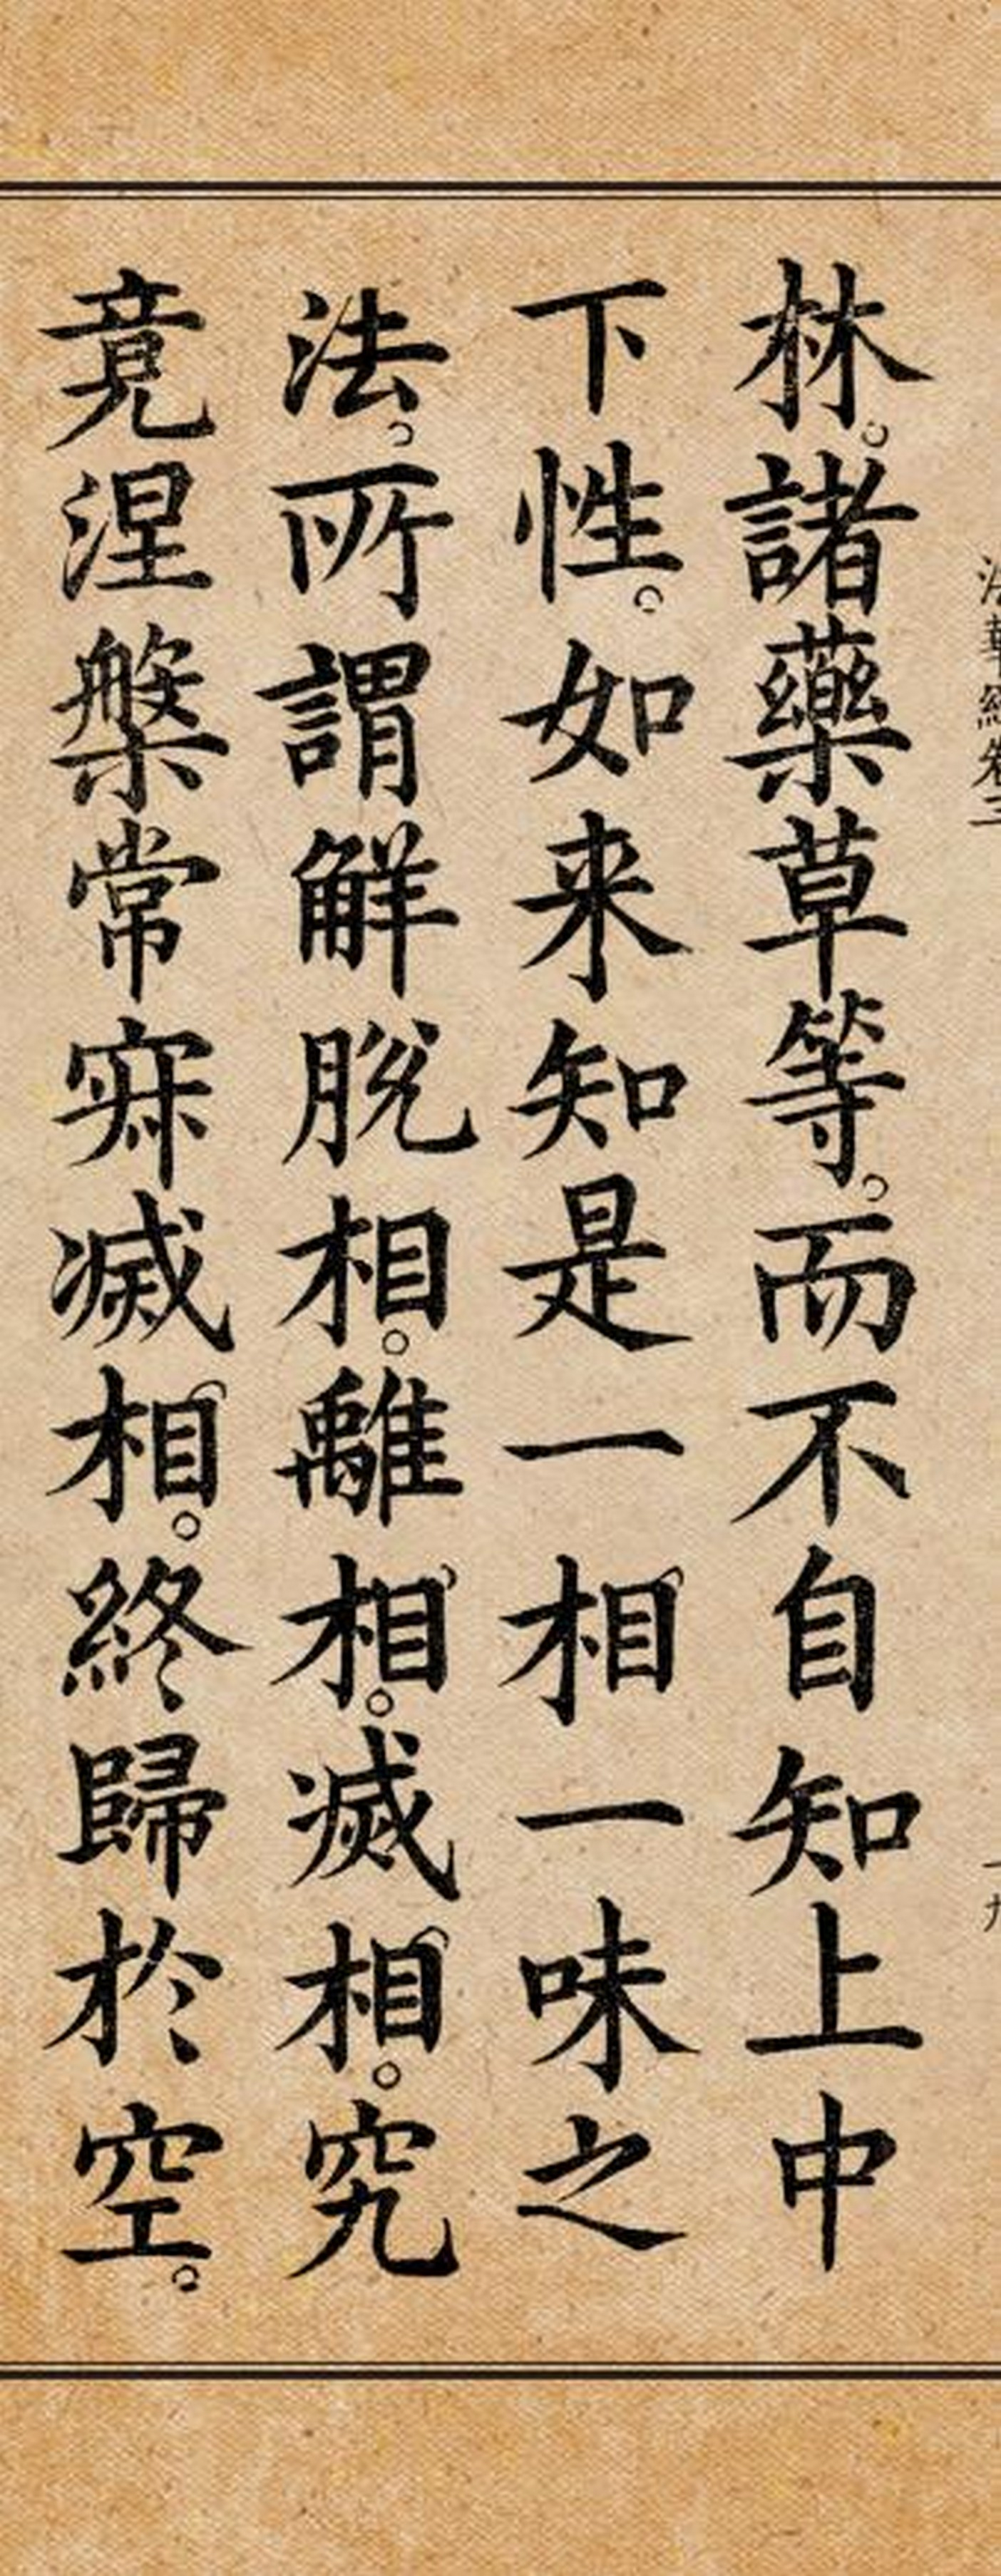 法華經卷三
十九
林。諸藥草等。而不自知上中
下性。如来知是一相一味之
法。所謂解脫相。離相。滅相。究
竟涅槃常寂滅相。終歸於空。